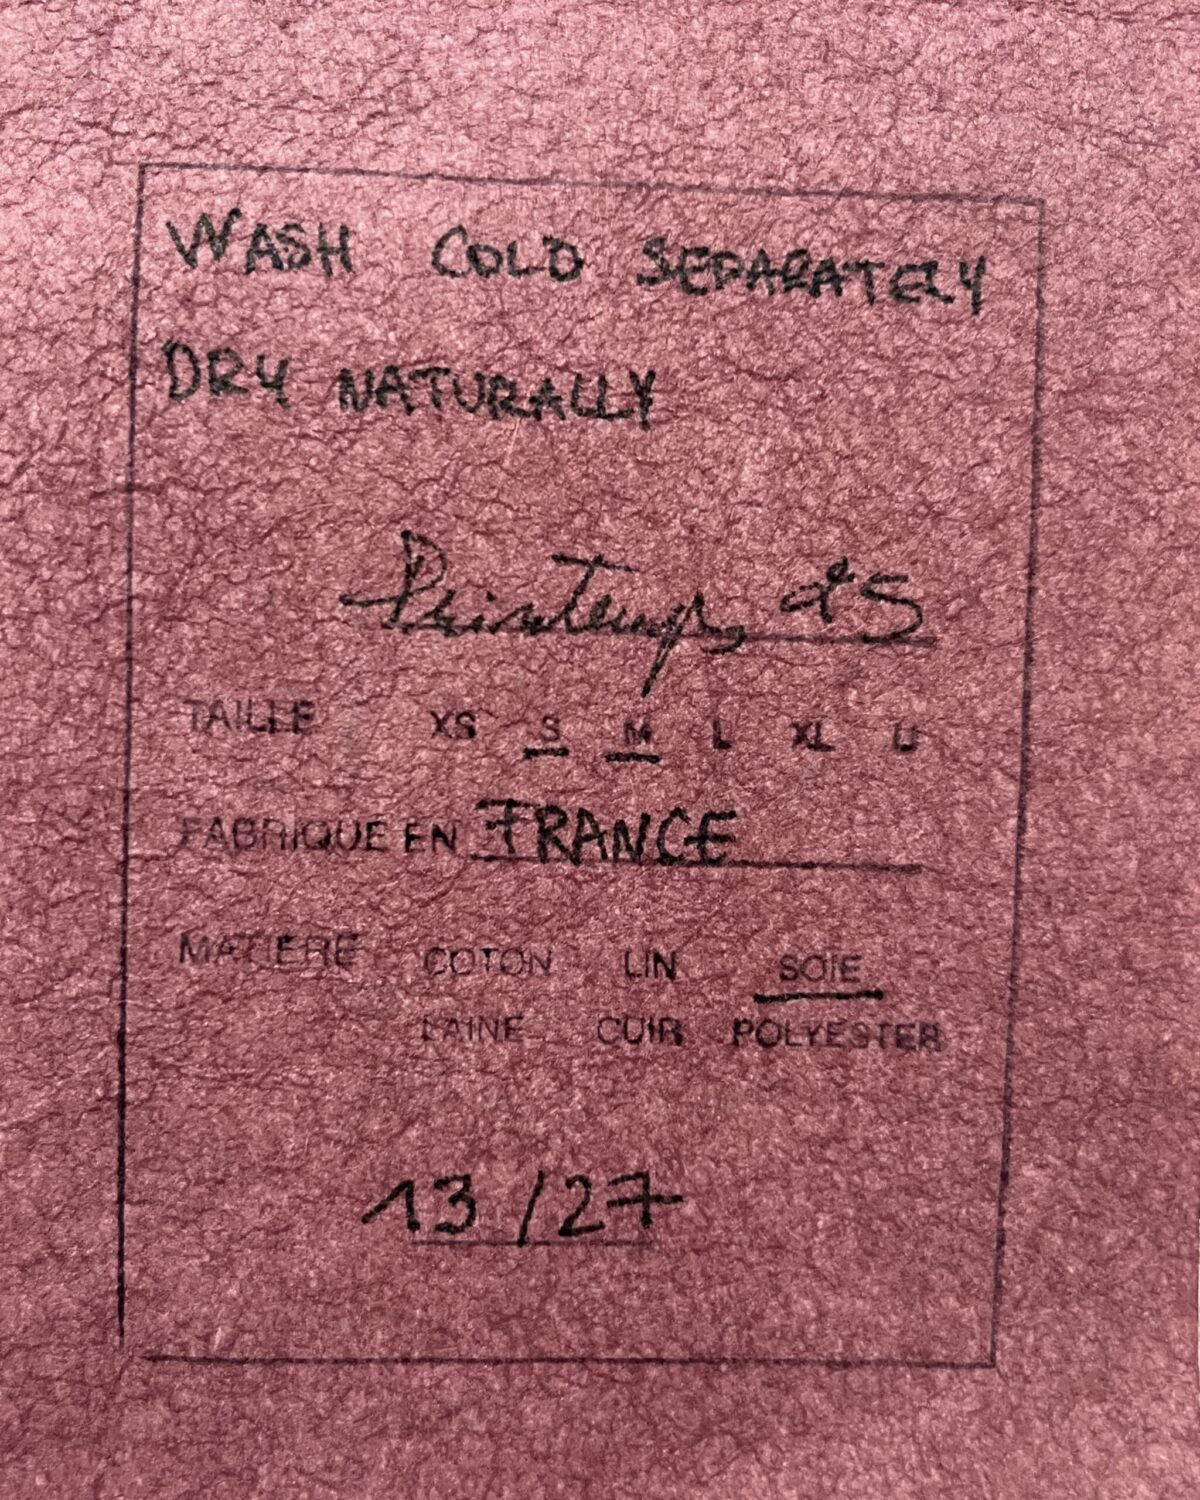 WASH COLD SEPARATELY
DRY NATURALLY
Printemps
TAILLE XS S M L XL U
FABRIQUE EN FRANCE
MATIERE COTON LIN SOIE
LAINE CUIR POLYESTER
13/27